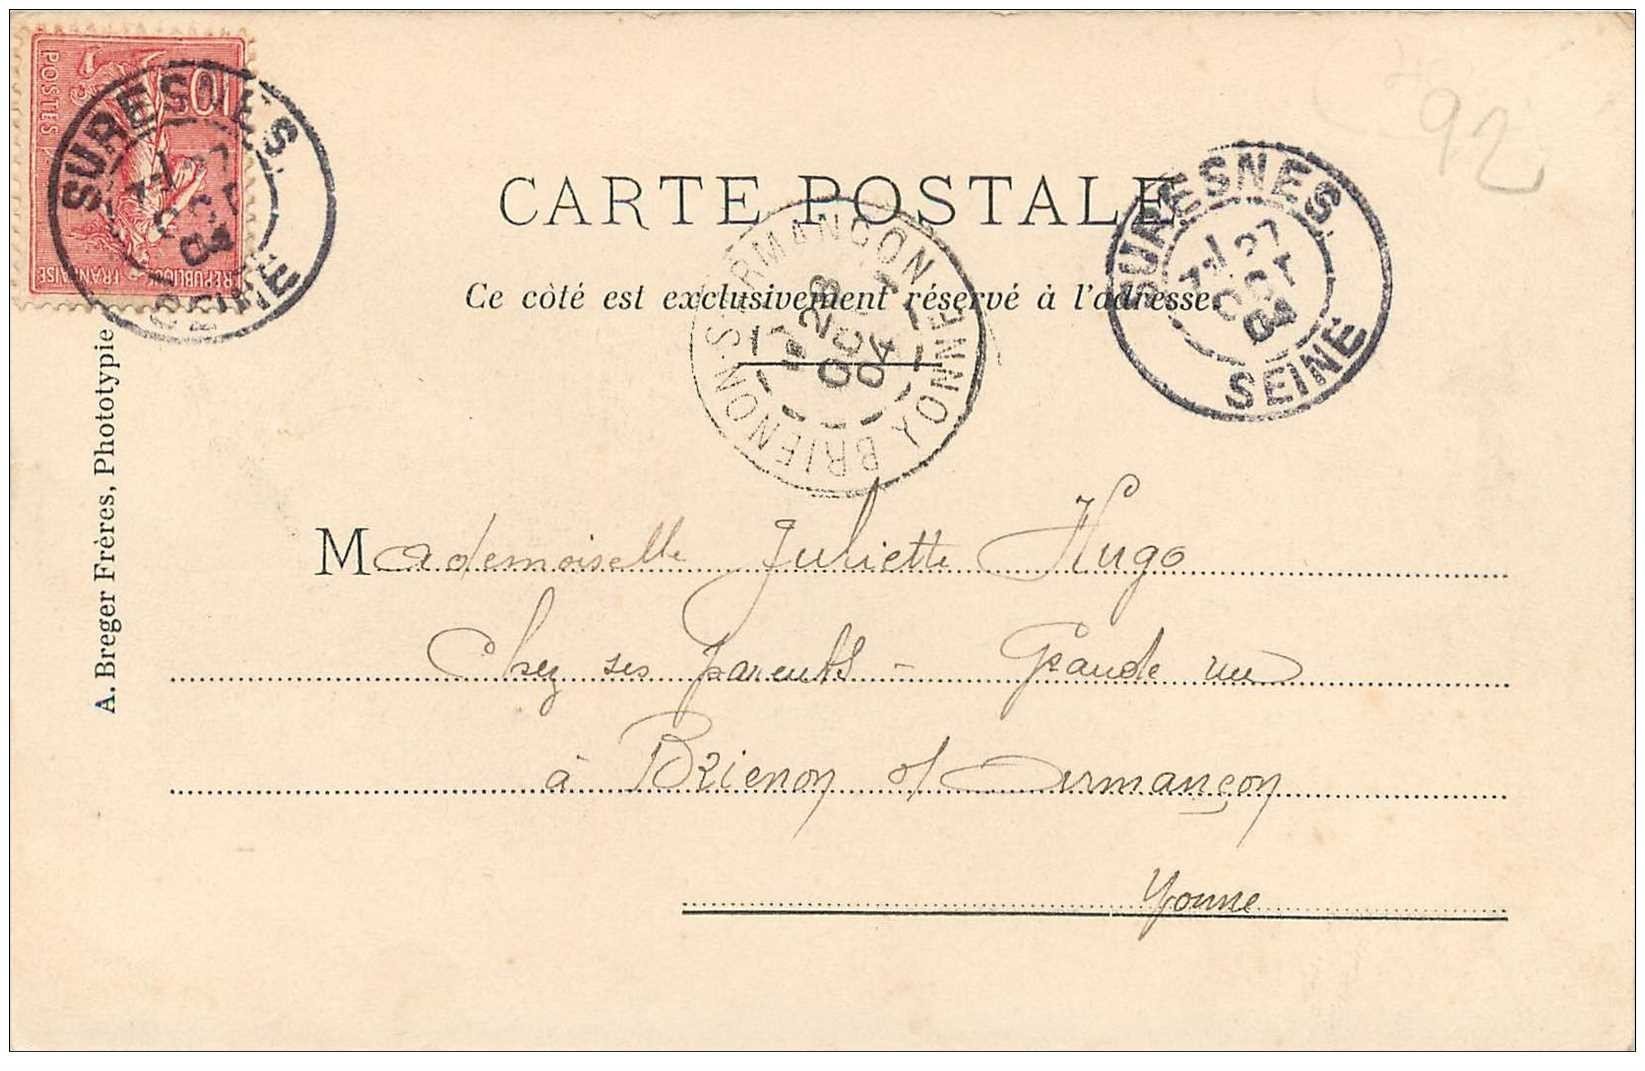 POSTES
10
RÉPUBLIQUE FRANÇAISE
SURESNES
27
OCT
04
SEINE
92
CARTE POSTALE
Ce côté est exclusivement réservé à l'adresse.
BRIENON-S-ARMANÇON
28
OCT
04
YONNE
SURESNES
27
OCT
04
SEINE
A. Breger Frères, Phototypie
Mademoiselle Juliette Hugo
Chez ses parents - Grande rue
à Brienon s/ Armançon
Yonne